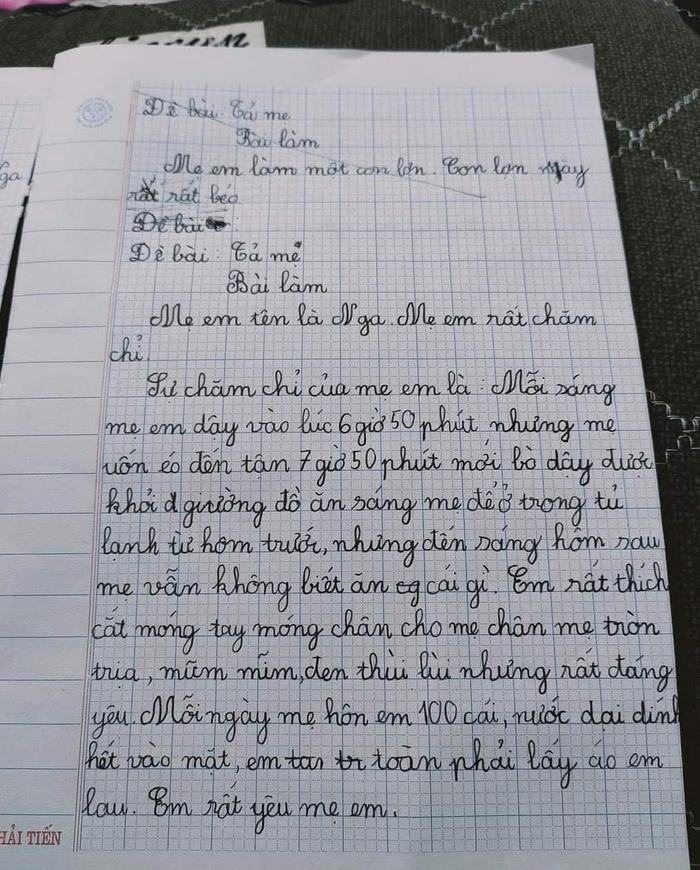 Đề bài: Tả mẹ
Bài làm
Mẹ em làm một con lợn. Con lợn này
rất rất béo
Đề bài:
Đề bài: Tả mẹ
Bài làm
Mẹ em tên là Nga. Mẹ em rất chăm
chỉ.
Sự chăm chỉ của mẹ em là: Mỗi sáng
mẹ em dậy vào lúc 6 giờ 50 phút nhưng mẹ
uốn éo đến tận 7 giờ 50 phút mới bò dậy được
khỏi giường đồ ăn sáng mẹ để ở trong tủ
lạnh từ hôm trước, nhưng đến sáng hôm sau
mẹ vẫn không biết ăn cái gì. Em rất thích
cắt móng tay móng chân cho mẹ chân mẹ tròn
trịa, mũm mĩm, đen thùi lùi nhưng rất đáng
yêu. Mỗi ngày mẹ hôn em 100 cái, nước dại dính
hết vào mặt, em toàn phải lấy áo em
lau. Em rất yêu mẹ em.
ga!
HẢI TIẾN